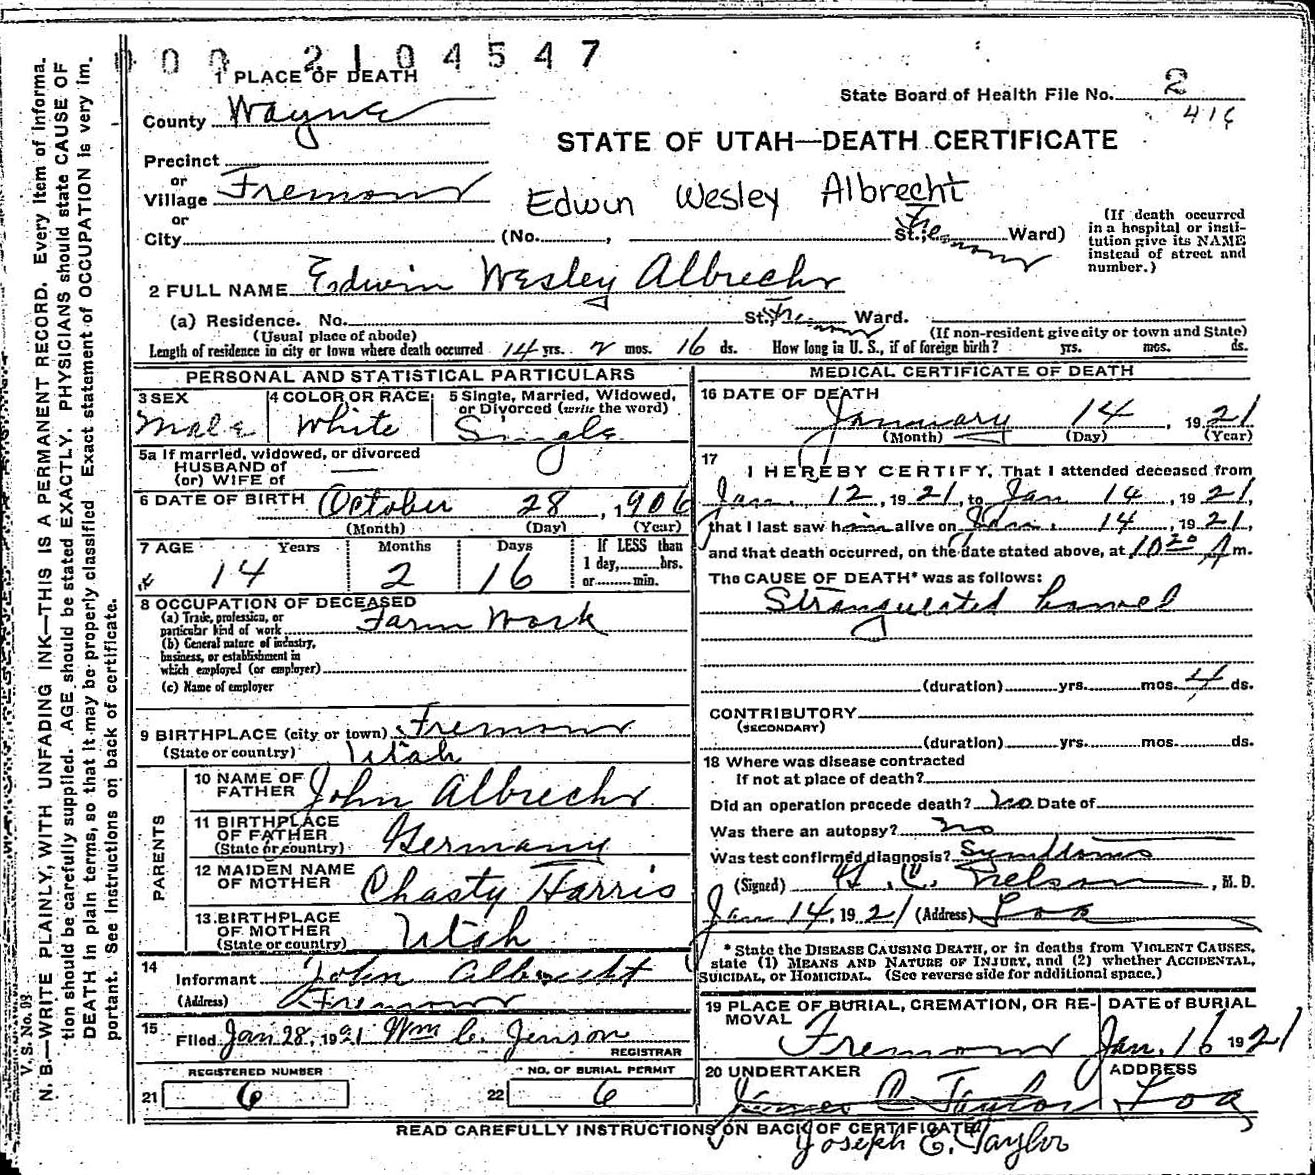 000 2104547
1 PLACE OF DEATH
County Wayne
State Board of Health File No. 2
416
STATE OF UTAH—DEATH CERTIFICATE
Precinct
or
Village Fremont
Edwin Wesley Albrecht
or
City (No. , St.; Fremont Ward)
(If death occurred in a hospital or insti-
tution give its NAME instead of street and number.)
2 FULL NAME Edwin Wesley Albrecht
(a) Residence. No. St. Fremont Ward.
(Usual place of abode) (If non-resident give city or town and State)
Length of residence in city or town where death occurred 14 yrs. 2 mos. 16 ds. How long in U. S., if of foreign birth? yrs. mos. ds.
PERSONAL AND STATISTICAL PARTICULARS
3 SEX Male
4 COLOR OR RACE White
5 Single, Married, Widowed, or Divorced (write the word) Single
5a If married, widowed, or divorced
HUSBAND of
(or) WIFE of —
6 DATE OF BIRTH October 28, 1906
(Month) (Day) (Year)
7 AGE Years Months Days If LESS than
14 2 16 1 day, hrs.
or min.
8 OCCUPATION OF DECEASED
(a) Trade, profession, or
particular kind of work Farm Work
(b) General nature of industry,
business, or establishment in
which employed (or employer)
(c) Name of employer
9 BIRTHPLACE (city or town) Fremont
(State or country) Utah
PARENTS
10 NAME OF FATHER John Albrecht
11 BIRTHPLACE OF FATHER (State or country) Germany
12 MAIDEN NAME OF MOTHER Chasty Harris
13 BIRTHPLACE OF MOTHER (State or country) Utah
14
Informant John Albrecht
(Address) Fremont
15
Filed Jan 28, 1921 Wm C. Jenson
REGISTRAR
REGISTERED NUMBER
21 6
NO. OF BURIAL PERMIT
22 6
MEDICAL CERTIFICATE OF DEATH
16 DATE OF DEATH
January 14, 1921
(Month) (Day) (Year)
17
I HEREBY CERTIFY, That I attended deceased from
Jan. 12, 1921, to Jan 14, 1921,
that I last saw him alive on Jan. 14, 1921,
and that death occurred, on the date stated above, at 10 20 A m.
The CAUSE OF DEATH* was as follows:
Strangulated bowel
(duration) yrs. mos. 4 ds.
CONTRIBUTORY
(SECONDARY)
(duration) yrs. mos. ds.
18 Where was disease contracted
If not at place of death?
Did an operation precede death? No Date of
Was there an autopsy? no
Was test confirmed diagnosis? Symtoms
(Signed) C. Nelson, M. D.
Jan 14, 1921 (Address) Loa
* State the DISEASE CAUSING DEATH, or in deaths from VIOLENT CAUSES,
state (1) MEANS AND NATURE OF INJURY, and (2) whether ACCIDENTAL,
SUICIDAL, or HOMICIDAL. (See reverse side for additional space.)
19 PLACE OF BURIAL, CREMATION, OR RE-
MOVAL Fremont
DATE of BURIAL
Jan. 16 1921
20 UNDERTAKER
James C Taylor
ADDRESS
Loa
READ CAREFULLY INSTRUCTIONS ON BACK OF CERTIFICATE
Joseph E. Taylor
V. S. No. 103.
N. B.—WRITE PLAINLY, WITH UNFADING INK—THIS IS A PERMANENT RECORD. Every item of informa-
tion should be carefully supplied. AGE should be stated EXACTLY. PHYSICIANS should state CAUSE OF
DEATH in plain terms, so that it may be properly classified. Exact statement of OCCUPATION is very im-
portant. See instructions on back of certificate.